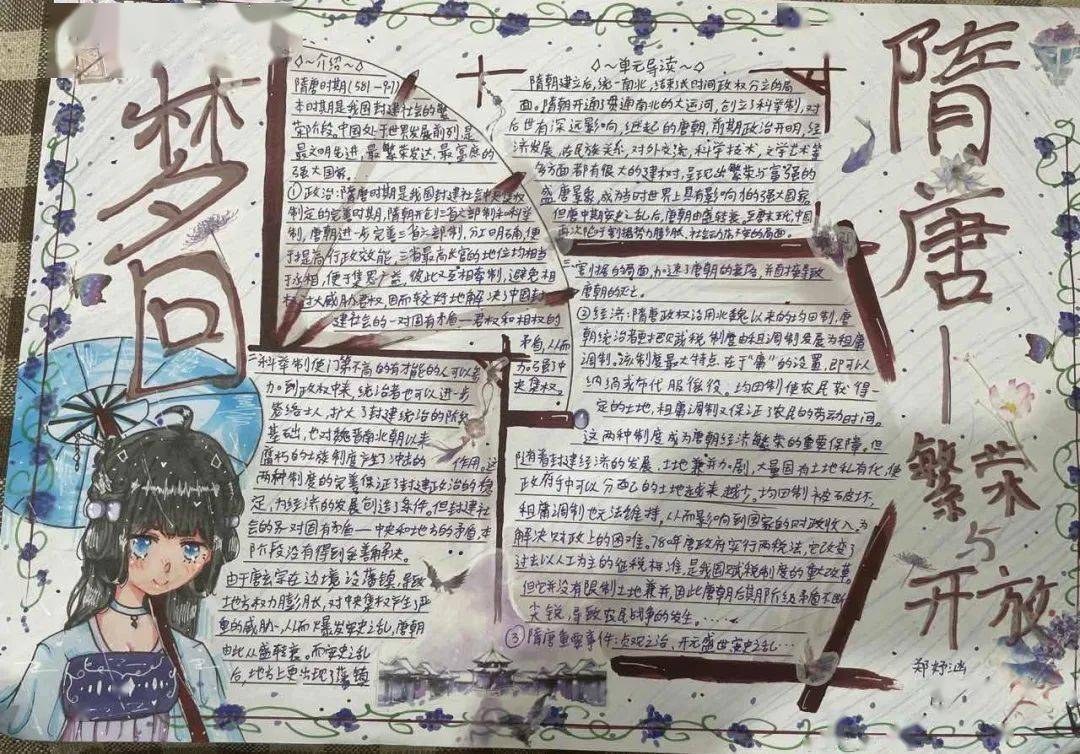 梦回
隋唐
—
繁荣
与
开放
郑妤涵
◇～介绍～◇
隋唐时期(581-907)
本时期是我国封建社会的繁
荣阶段,中国处于世界发展前列,是
最文明先进,最繁荣发达,最富庶的
强大国家。
①政治:隋唐时期是我国封建社会中央集权
制定的完善时期,隋朝开创三省六部制和科举
制,唐朝进一步完善三省六部制,分工明确,便
于提高行政效能,三省最高长官的地位均相当
于丞相,便于集思广益,彼此又互相牵制,避免相
权过大威胁君权,因而较好地解决了中国封
建社会的一对固有矛盾—君权和相权的
矛盾,从而
加强了中
央集权。
科举制使门第不高的有才能的人可以参
加到政权中来,统治者也可以进一步
笼络士人,扩大了封建统治的阶级
基础,也对魏晋南北朝以来
腐朽的士族制度产生了冲击的作用。这
两种制度的完善保证了封建政治的稳
定,为经济的发展创造了条件。但封建社
会的另一对固有矛盾—中央和地方的矛盾,本
阶段没有得到完善解决。
由于唐玄宗在边境设藩镇,导致
地方权力膨胀,对中央集权产生了严
重的威胁,从而爆发安史之乱,唐朝
由此从盛转衰。而安史之乱
后,地方上更出现了藩镇
◇～单元导读～◇
隋朝建立后,统一南北,结束长时间政权分立的局
面。隋朝开通了贯通南北的大运河,创立了科举制,对
后世有深远影响,继起的唐朝,前期政治开明,经
济发展,在民族关系,对外交流,科学技术,文学艺术等
多方面都有很大的建树,呈现出繁荣与富强的
盛唐景象,成为当时世界上具有影响力的强大国家。
但唐中期安史之乱后,唐朝由盛转衰,至唐末现中国
再次陷于割据势力膨胀,社会动荡不安的局面。
割据的局面,加速了唐朝的衰落,并直接导致
唐朝的灭亡。
②经济:隋唐政权沿用北魏以来的均田制,唐
朝统治者更把赋税制度由租调制发展为租庸
调制。该制度最大特点在于“庸”的设置,即可以
纳绢或布代服徭役。均田制使农民获得一
定的土地,租庸调制又保证了农民的劳动时间。
这两种制度成为唐朝经济繁荣的重要保障。但
随着封建经济的发展,土地兼并加剧,大量国有土地私有化,使
政府手中可以分配的土地越来越少,均田制被破坏,
租庸调制也无法维持,从而影响到国家的财政收入,为
解决财政上的困难。780年唐政府实行两税法,它改变了
过去以人丁为主的征税标准,是我国赋税制度的重大改革,
但它并没有限制土地兼并,因此唐朝后期阶级矛盾不断
尖锐,导致农民战争的发生。……
③隋唐重要事件:贞观之治、开元盛世安史之乱…